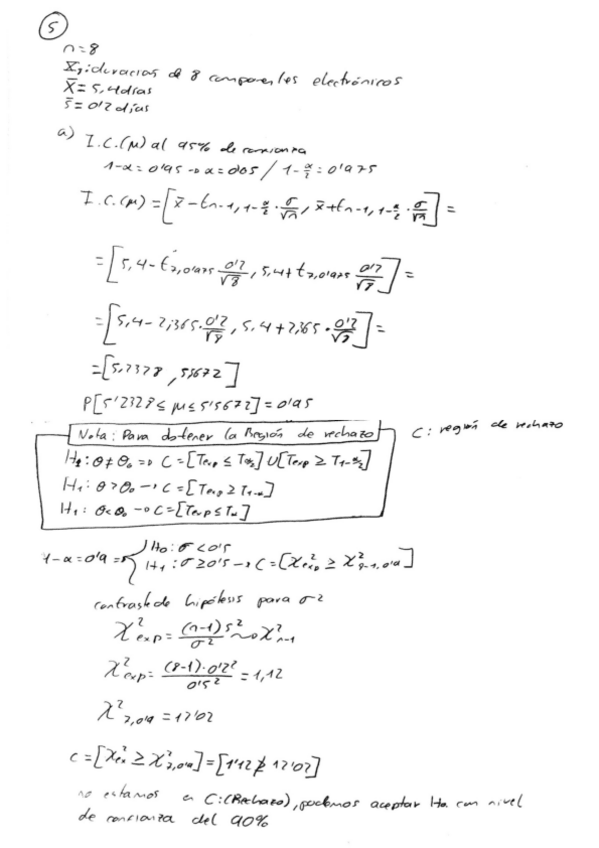 5
n=8
X₈: duraciones de 8 componentes electrónicos
X̄ = 5,4 días
s̄ = 0'2 días
a) I.C.(μ) al 95% de confianza
1-α = 0'95 → α = 0'05 / 1-α/2 = 0'975
I.C.(μ) = [x̄ - t n-1, 1-α/2 · σ/√n, x̄ + t n-1, 1-α/2 · σ/√n] =
= [5,4 - t 7,0'975 0'2/√8, 5,4 + t 7,0'975 0'2/√8] =
= [5,4 - 2,365 · 0'2/√8, 5.4 + 2,365 · 0'2/√8] =
= [5,2328, 5,5672]
P[5'2328 ≤ μ ≤ 5'5672] = 0'95
Nota: Para obtener la Región de rechazo
C: región de rechazo
H₁: θ ≠ θ₀ ⇒ C = [Texp ≤ Tα/2] U [Texp ≥ T1-α/2]
H₁: θ > θ₀ → C = [Texp ≥ T1-α]
H₁: θ < θ₀ → C = [Texp ≤ Tα]
1-α = 0'9 ⇒ { H₀: σ < 0'5
H₁: σ ≥ 0'5 → C = [χ²exp ≥ χ²8-1, 0'9]
contraste de hipótesis para σ²
χ²exp = (n-1)s²/σ² ~ χ²n-1
χ²exp = (8-1)·0'2²/0'5² = 1,12
χ²7,0'9 = 12'02
C = [χ²ex ≥ χ²7,0'9] = [1'12 ≱ 12'02]
no estamos en C:(Rechazo), podemos aceptar Ho con nivel
de confianza del 90%